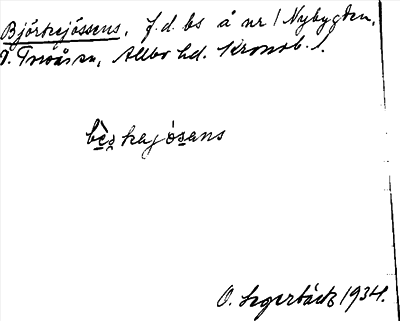 Björkejössens, f.d. bs å nr 1 Nybygden,
V. Torsås sn, Allbo hd. Kronob. l.
bȅs̯kajósans
O. Segerbäck 1934.